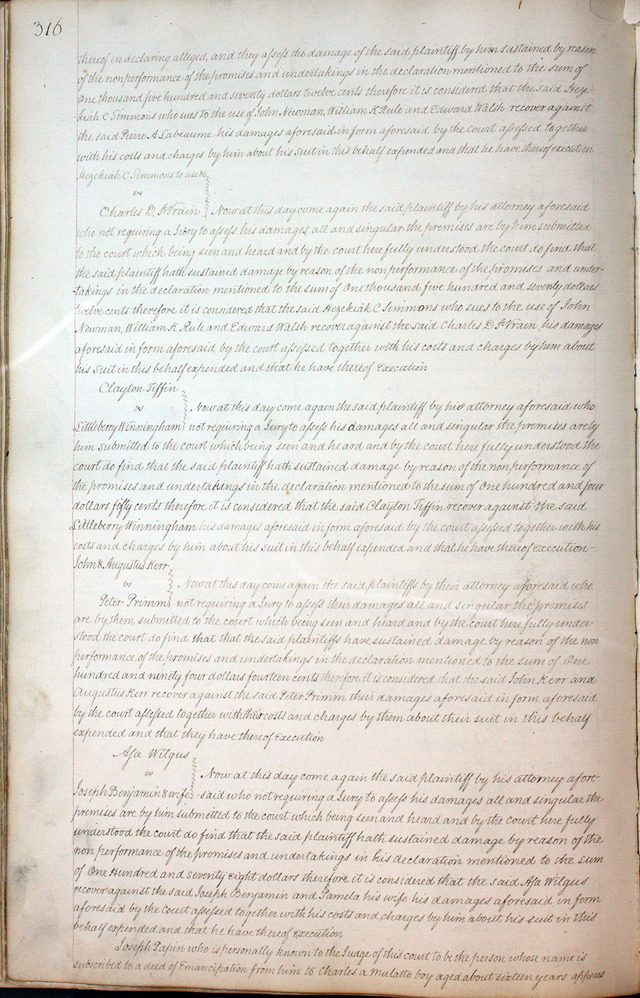 316
thereof in declaring alleged, and they assess the damage of the said plaintiff by him sustained by reason
of the nonperformance of the promises and undertakings in the declaration mentioned to the sum of
One thousand five hundred and seventy dollars twelve cents therefore it is considered that the said Heze-
kiah C Simmons who sues to the use of John Newman, William K Rule and Edward Walsh recover against
the said Pierre A Labeaume his damages aforesaid in form aforesaid by the court assessed together
with his costs and charges by him about his suit in this behalf expended and that he have thereof execution
Hezekiah C Simmons to use &c
vs
Charles D. St Vrain Now at this day come again the said plaintiff by his attorney aforesaid
who not requiring a Jury to assess his damages all and singular the premises are by him submitted
to the court which being seen and heard and by the court here fully understood the court do find that
the said plaintiff hath sustained damage by reason of the nonperformance of the promises and under-
takings in the declaration mentioned to the sum of One thousand five hundred and seventy dollars
twelve cents therefore it is considered that the said Hezekiah C Simmons who sues to the use of John
Newman, William K. Rule and Edward Walsh recover against the said Charles D. St Vrain his damages
aforesaid in form aforesaid by the court assessed together with his costs and charges by him about
his suit in this behalf expended and that he have thereof Execution
Clayton Tiffin
vs Now at this day come again the said plaintiff by his attorney aforesaid who
Littleberry Winningham not requiring a Jury to assess his damages all and singular the premises are by
him submitted to the court which being seen and heard and by the court here fully understood the
court do find that the said plaintiff hath sustained damage by reason of the nonperformance of
the promises and undertakings in the declaration mentioned to the sum of One hundred and four
dollars fifty cents therefore it is considered that the said Clayton Tiffin recover against the said
Littleberry Winningham his damages aforesaid in form aforesaid by the court assessed together with his
costs and charges by him about his suit in this behalf expended and that he have thereof execution-
John & Augustus Kerr
vs Now at this day come again the said plaintiffs by their attorney aforesaid who
Peter Primm not requiring a Jury to assess their damages all and singular the premises
are by them submitted to the court which being seen and heard and by the court here fully under-
stood the court do find that that the said plaintiffs have sustained damage by reason of the non
performance of the promises and undertakings in the declaration mentioned to the sum of One
hundred and ninety four dollars fourteen cents therefore it is considered that the said John Kerr and
Augustus Kerr recover against the said Peter Primm their damages aforesaid in form aforesaid
by the court assessed together with their costs and charges by them about their suit in this behalf
expended and that they have thereof Execution
Asa Wilgus
vs Now at this day come again the said plaintiff by his attorney afore-
Joseph Benjamin & wife said who not requiring a Jury to assess his damages all and singular the
premises are by him submitted to the court which being seen and heard and by the court here fully
understood the court do find that the said plaintiff hath sustained damage by reason of the
non performance of the promises and undertakings in his declaration mentioned to the sum
of One Hundred and seventy eight dollars therefore it is considered that the said Asa Wilgus
recover against the said Joseph Benjamin and Pamela his wife his damages aforesaid in form
aforesaid by the court assessed together with his costs and charges by him about his suit in this
behalf expended and that he have thereof Execution
Joseph Papin who is personally known to the Judge of this court to be the person whose name is
subscribed to a deed of Emancipation from him to Charles a mulatto boy aged about sixteen years appears